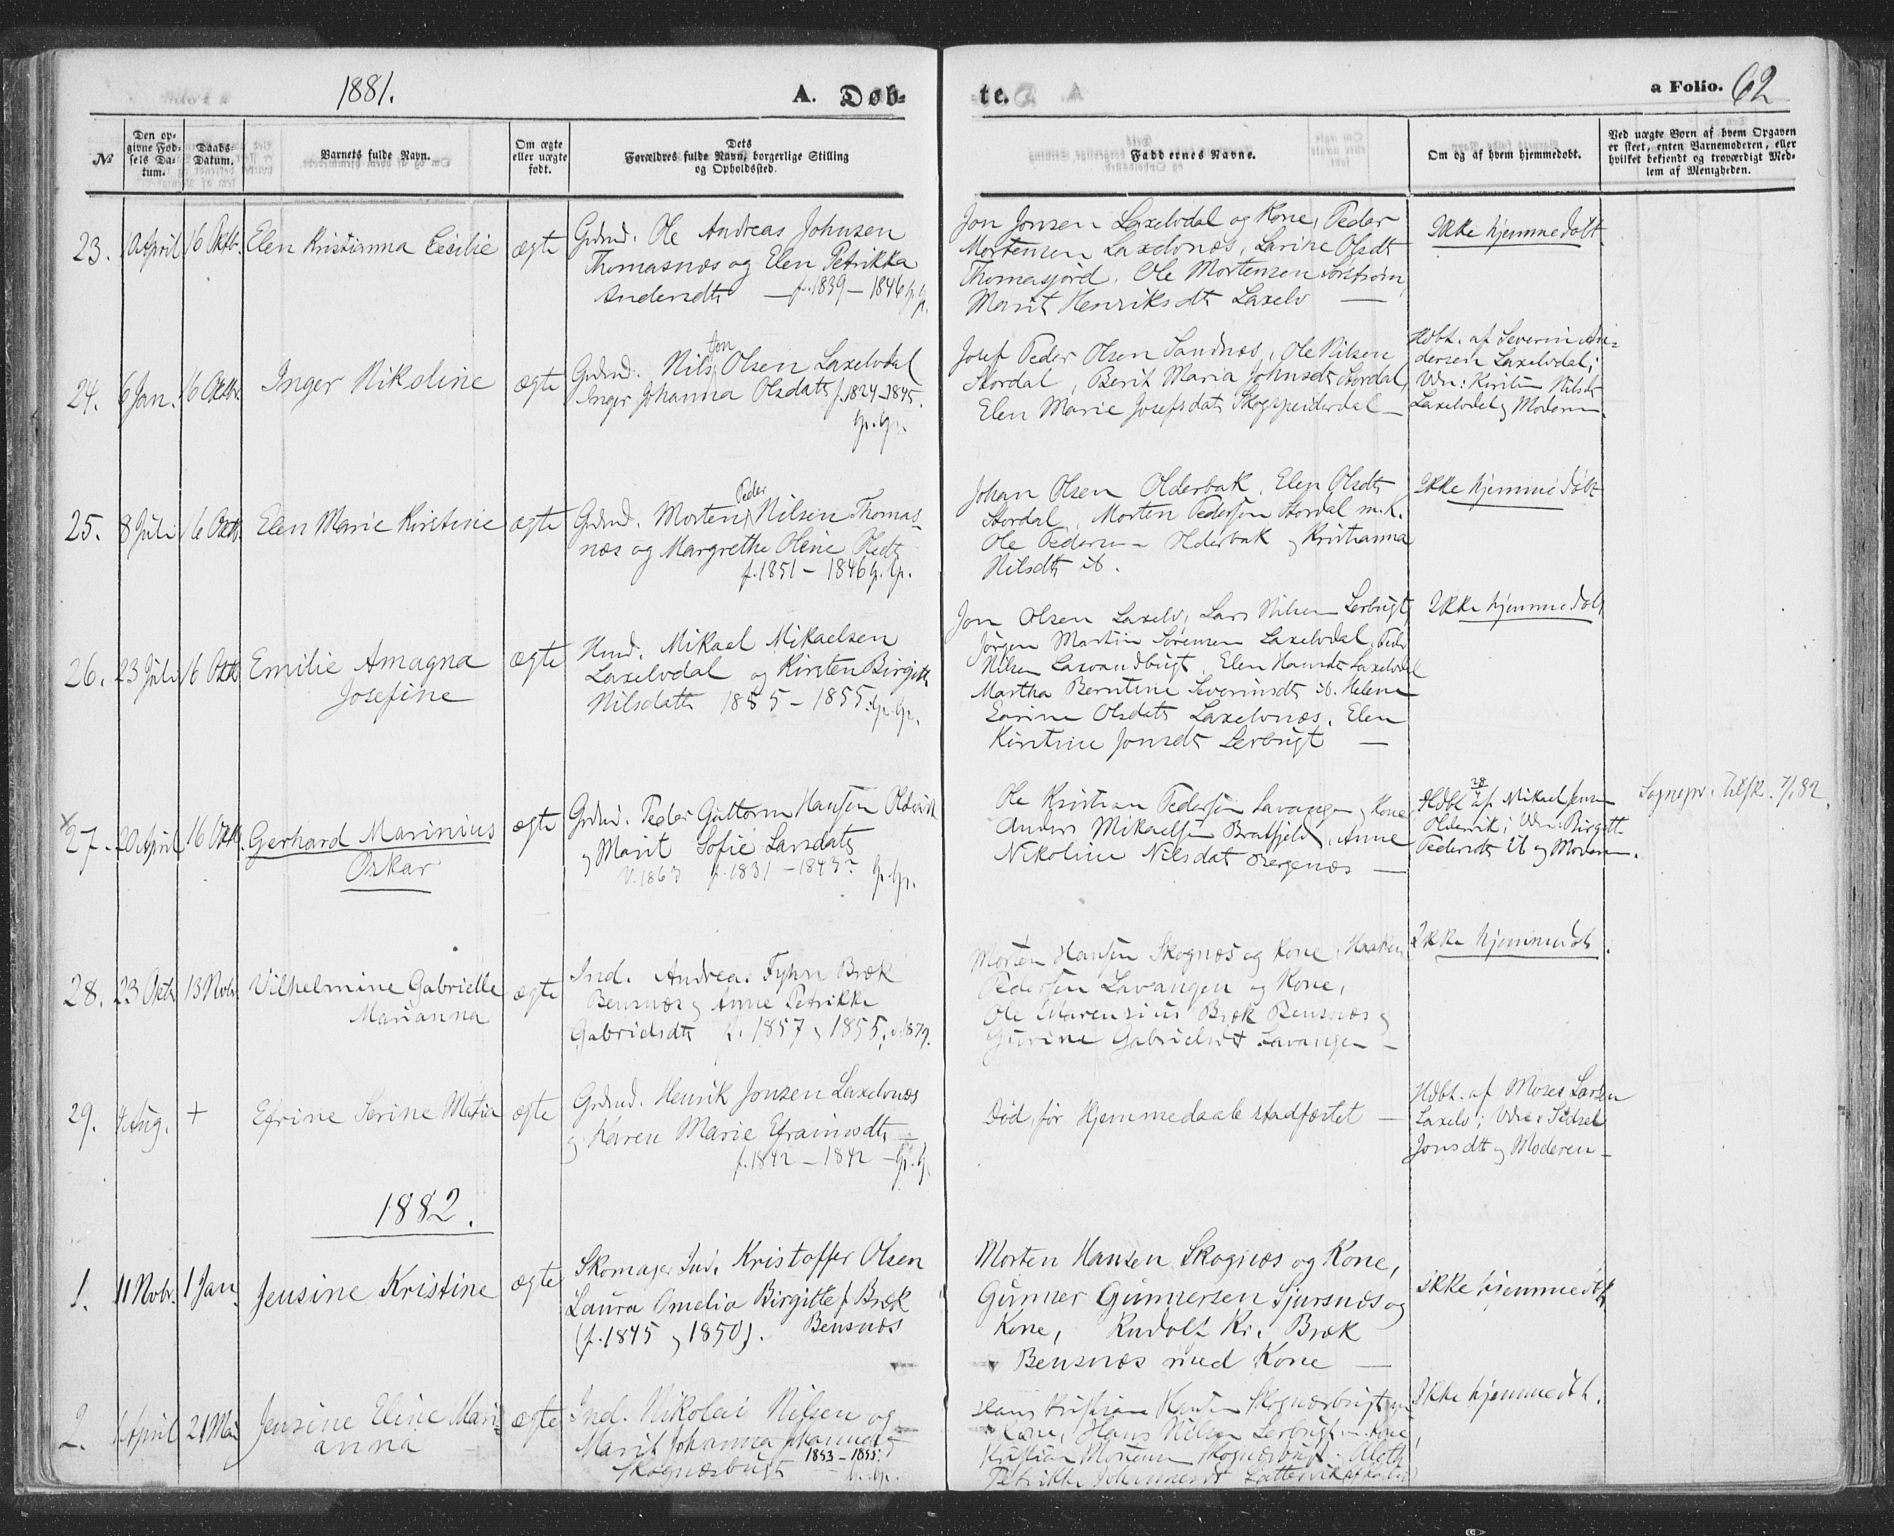 1881.
A. Døb-
te.
a Folio. 62
№
Den op-
givne Fød-
sels Da-
tum.
Daabs-
Datum.
Barnets fulde Navn.
Om ægte
eller uægte
født.
Dets
Forældres fulde Navn, borgerlige Stilling
og Opholdssted.
Faddernes Navne.
Om og af hvem hjemmedøbt.
Ved uægte Børn af hvem Opgaven
er skeet, enten Barnemoderen, eller
hvilket bekjendt og troværdigt Med-
lem af Menigheden.
23. 1 April 16 Oktb. Elen Kristianna Cecilie ægte
Grdmd. Ole Andreas Johnsen
Thomasnæs og Elen Petrikka
Andersdtr — f. 1839 – 1846
Jon Jonsen Laxelvdal og Kone, Peder
Mortensen Laxelvnæs, Larine Olsdt
Thomasjord, Ole Mortensen
Marit Henriksdtr Laxelv —
Ikke hjemmedøbt
24. 6 Jan. 16 Oktbr. Inger Nikoline ægte
Jon
Grdmd. Nils Olsen Laxelvdal
Inger Johanna Olsdatr f. 1824–1845.
gr. gr.
Josef Peder Olsen Sandnæs, Ole Nilsen
Stordal, Berit Maria Johnsdtr Stordal,
Elen Marie Josefsdatr —
Hdbt. af Severin An-
dersen Laxelvdal;
Vdn: Kirstin Nilsdtr
Laxelvdal og Moderen
25. 8 Juli 16 Oktb. Elen Marie Kirstine ægte
Peder
Grdmd. Morten Nilsen Thomas-
næs og Margrethe Oline Olsdtr
f. 1851 – 1846 gr. gr.
Johan Olsen Olderbak, Elen Olsdtr
Stordal, Morten Pedersen Stordal m. K.
Ole Pedersen Olderbak og Kristianna
Nilsdtr ib.
Ikke hjemmedøbt
26. 23 Juli 16 Oktb Emilie Amagna
Josefine
ægte
Hmd. Mikael Mikaelsen
Laxelvdal og Kirsten Birgitte
Nilsdattr 1855 – 1855. gr. gr.
Jon Olsen Laxelv, Lars Nilsen Lerbugt,
Jørgen Martin Sørensen Laxelvdal, Peder
Nilsen Laxvandbugt, Elen Hansdtr Laxelvdal
Martha Berntine Severinsdtr ib. Helene
Sarine Olsdatr Laxelvnæs, Elen
Kirstine Jonsdtr Lerbugt —
Ikke hjemmedøbt
27. 20 April 16 Oktb. Gerhard Marinius
Oskar
ægte
Grdmd. Peder Guttorm Hansen
og Marit Sofie Larsdatr
V. 1863 f. 1831 – 1843 gr. gr.
Ole Kristian Pedersen Lavangen og Kone
Anders Mikaelsen Bratfjeld, Anne
Nikoline Nilsdat —
Hdbt af Mikael Jensen
Vdn: Birgitt-
Pedersdtr ib og Moderen.
Sognepr. 7/82.
28. 23 Oktb 13 Novbr. Vilhelmine Gabrielle
Marianna
ægte
Ind. Andreas Fyhn Bræk
Bensnæs og Anne Petrikke
Gabrielsdtr f. 1857 og 1855; v. 1879.
Morten Hansen Skognæs og Kone,
Pedersen Lavangen og Kone,
Ole Bræk Bensnæs og
Gurine Gabrielsdt Lavangen —
Ikke hjemmedøbt.
29. 4 Aug. + Efrine Serine Matia ægte
Grdmd. Henrik Jonsen Laxelvnæs
og Karen Marie Efraimsdtr
f. 1842 – 1842 –
Død før Hjemmedaab stadfæstet —
Hdbt. af Moses Larsen
Laxelv; Vdn: Sidsel
Jonsdtr og Moderen —
1882.
1. 11 Novbr. 1 Jan. Jensine Kristine ægte
Skomager Ind. Kristoffer Olsen
Laura Omelia Birgitte f. Bræk
(f. 1845 og 1850). Bensnæs
Morten Hansen Skognæs og Kone,
Gunner Gunnersen Sjursnæs og
Kone, Rudolf Kr. Bræk
Bensnæs med Kone —
Ikke hjemmedøbt
2. 1 April 21 Mai Jensine Eline Mari-
anna
ægte
Ind. Nikolai Nilsen og
Marit Johanna
Skognæsbugt 1853 – 1855
Hans Kristian Hansen Skognæsbugt
Kone, Hans Nilsen Lerbugt
Kristian Mortensen Skognæsbugt
Petrikke
Ikke hjemmedøbt.